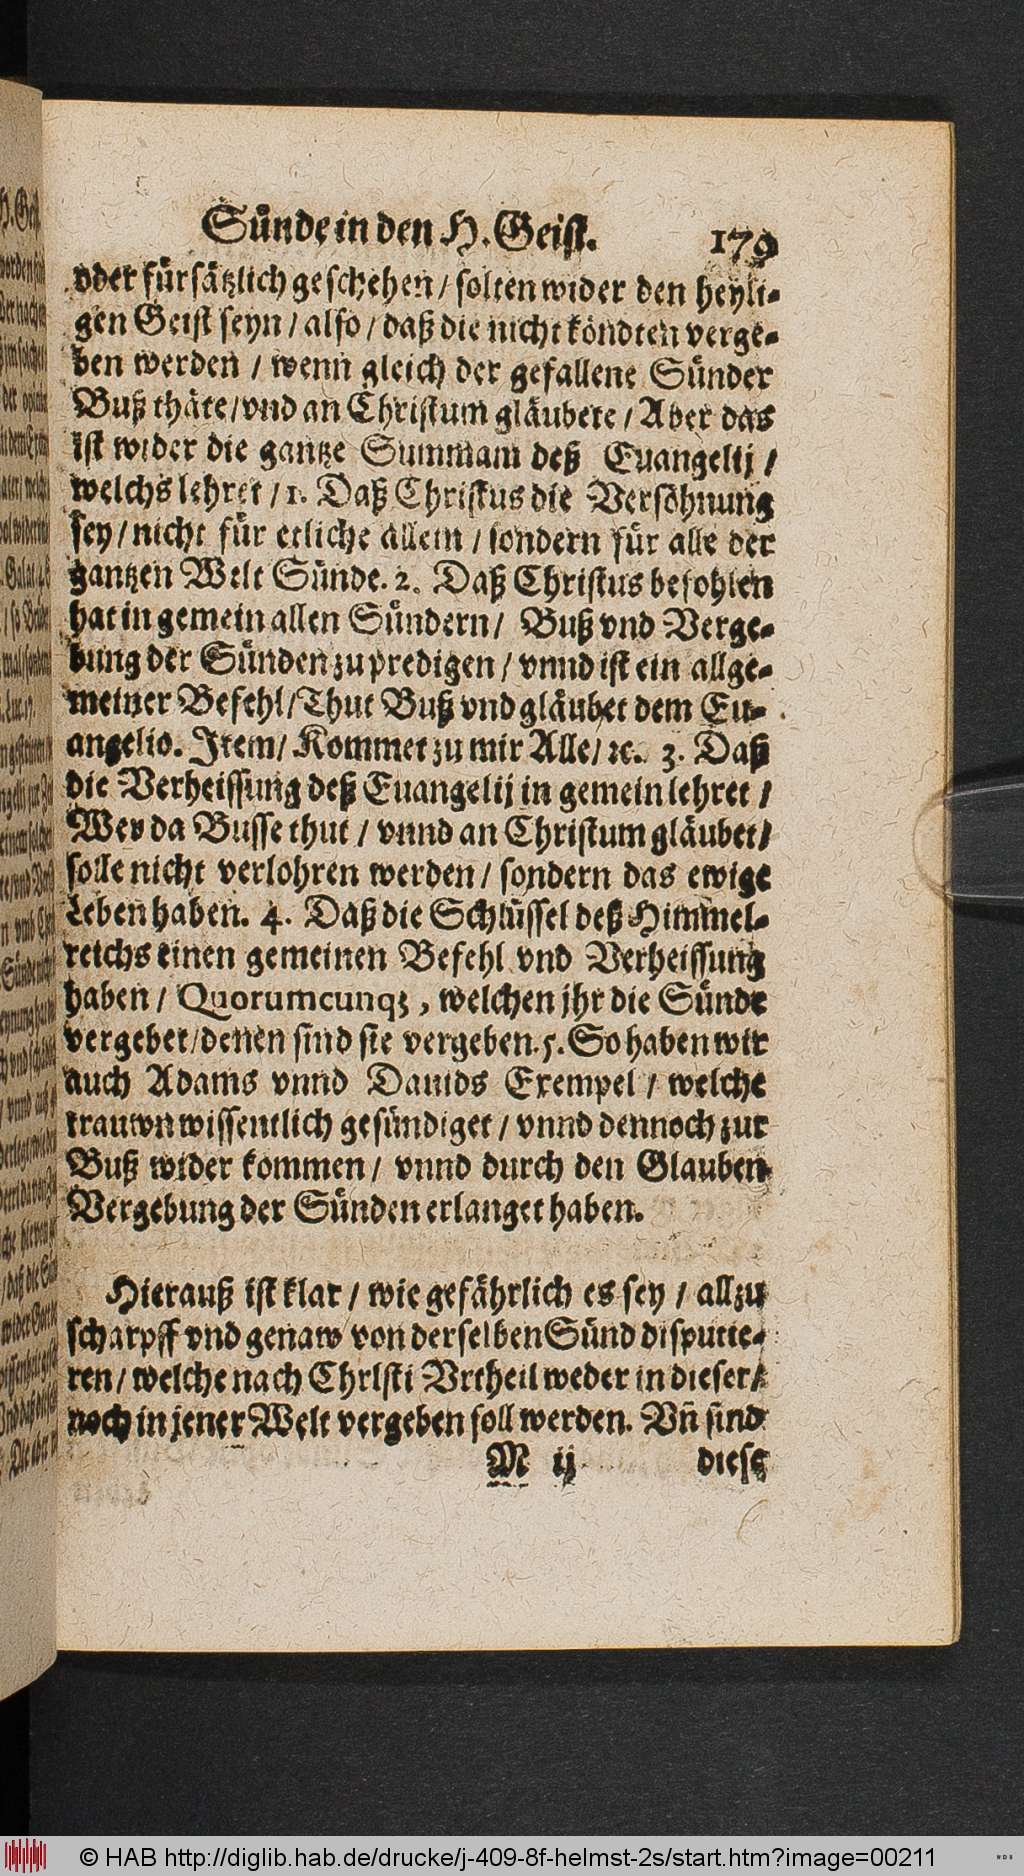 Sünde in den H. Geist. 179
oder fürsätzlich geschehen / solten wider den heyli-
gen Geist seyn / also / daß die nicht köndten verge-
ben werden / wenn gleich der gefallene Sünder
Buß thäte / vnd an Christum gläubete / Aber das
ist wider die gantze Summam deß Euangelij /
welchs lehret / 1. Daß Christus die Versöhnung
sey / nicht für etliche allein / sondern für alle der
gantzen Welt Sünde. 2. Daß Christus befohlen
hat in gemein allen Sündern / Buß vnd Verge-
bung der Sünden zu predigen / vnnd ist ein allge-
meiner Befehl / Thut Buß vnd gläubet dem Eu-
angelio. Item / Kommet zu mir Alle / ꝛc. 3. Daß
die Verheissung deß Euangelij in gemein lehret /
Wer da Busse thut / vnnd an Christum gläubet /
solle nicht verlohren werden / sondern das ewige
Leben haben. 4. Daß die Schlüssel deß Himmel-
reichs einen gemeinen Befehl vnd Verheissung
haben / Quorumcunqꝫ, welchen jhr die Sünde
vergebet / denen sind sie vergeben. 5. So haben wir
auch Adams vnnd Dauids Exempel / welche
trauwn wissentlich gesündiget / vnnd dennoch zur
Buß wider kommen / vnnd durch den Glauben
Vergebung der Sünden erlanget haben.
Hierauß ist klar / wie gefährlich es sey / allzu
scharpff vnd genaw von derselben Sünd disputie-
ren / welche nach Chrlsti Vrtheil weder in dieser /
noch in jener Welt vergeben soll werden. Vñ sind
M ij diese
© HAB http://diglib.hab.de/drucke/j-409-8f-helmst-2s/start.htm?image=00211